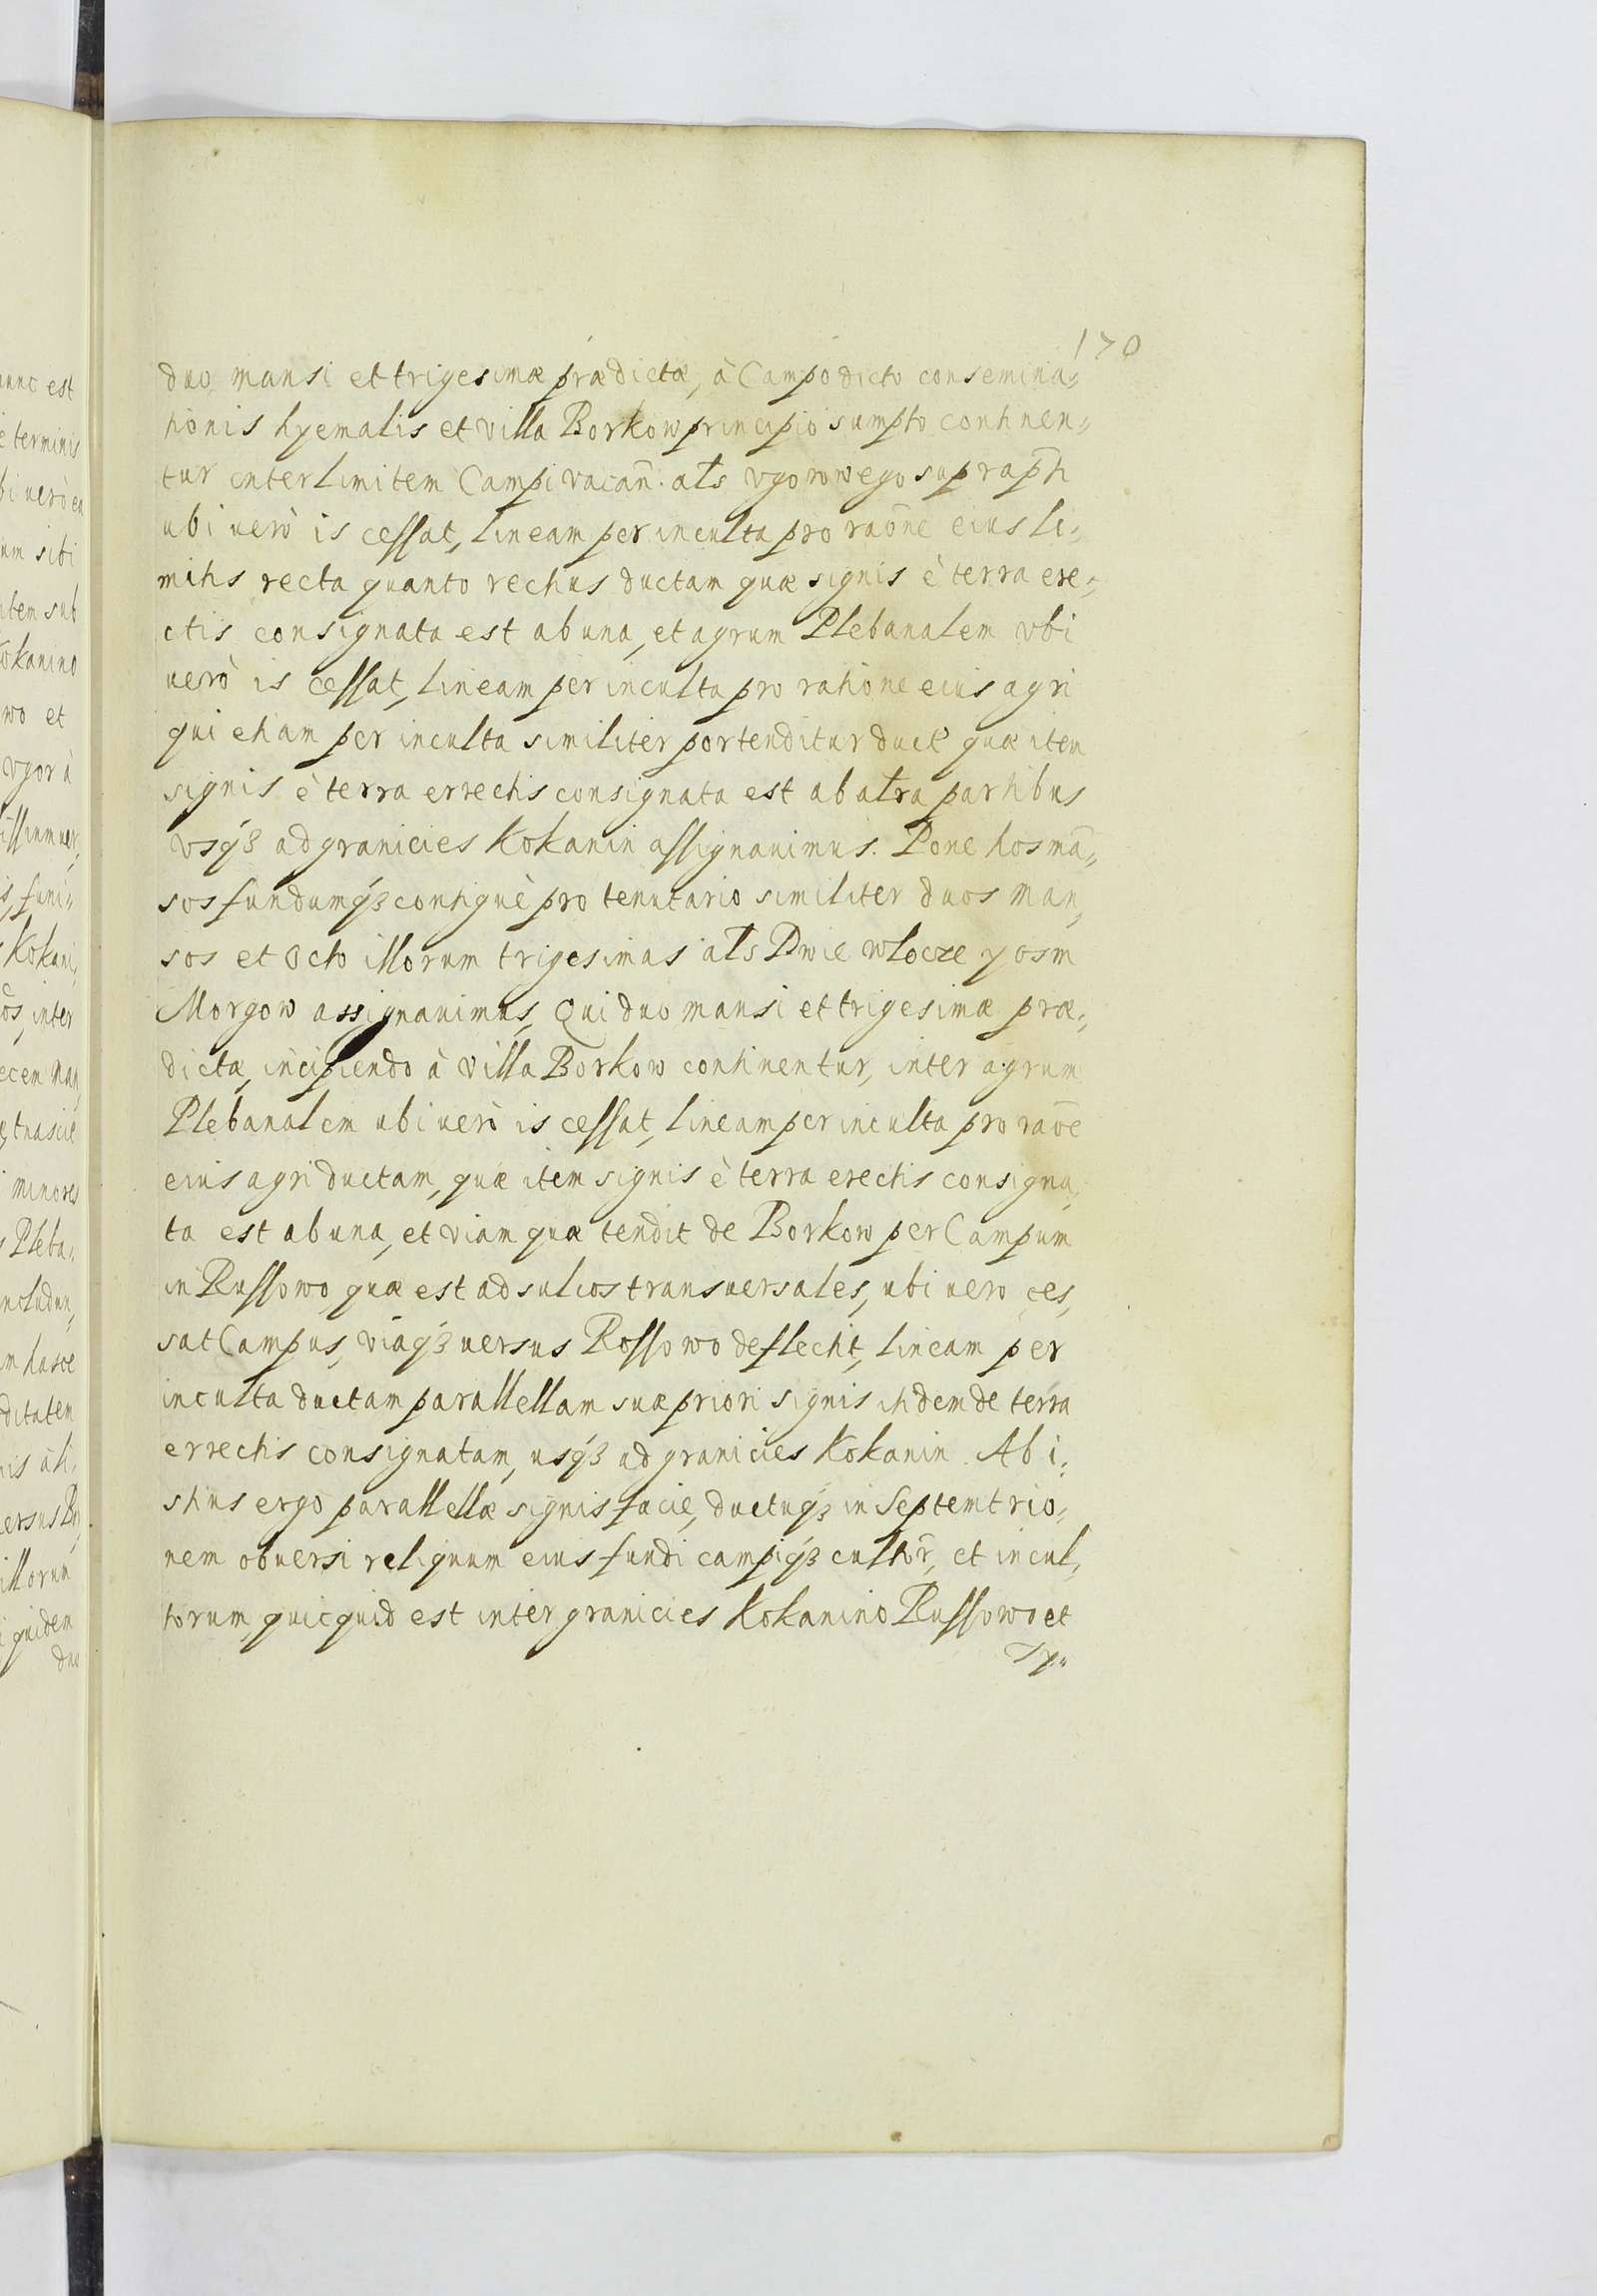 170
duo mansi et trigesimæ prædictæ, à Campo dicto consemina=
tionis hyemalis et villa Borkow principio sumpto continen=
tur inter limitem Campi vacan̄. als vgorowego suprap̄ti
ubi uerò is cessat, lineam per inculta pro raōne eius li=
mitis recta quanto rectius ductam quæ signis è terra ere=
ctis consignata est ab una, et agrum Plebanalem vbi
uerò is cessat, lineam per inculta pro ratione eius agri
qui etiam per inculta similiter portenditur duct̄ quæ item
signis è terra errectis consignata est ab altra partibus
vsq3 ad granicies Kokanin assignauimus. Pone hos mā=
sos fundumq3 contiguè pro tenutario similiter duos man=
sos et Octo illorum trigesimas als Dwie wlocze y osm
Morgow assignauimus, Qui duo mansi et trigesimæ præ=
dictæ, incipiendo à villa Borkow continentur, inter agrum
Plebanalem ubi uerò is cessat, lineam per inculta pro raōe
eius agri ductam, quæ item signis è terra erectis consigna=
ta est ab una, et viam quæ tendit de Borkow per Campum
in Russowo quæ est ad sulcos transuersales, ubi uero ces=
sat Campus, viaq3 uersus Rossowo deflectit, lineam per
inculta ductam parallellam suæ priori signis itidem de terra
errectis consignatam, usq3 ad granicies Kokanin. Ab i=
stius ergo parallellæ signis facie, ductuq3 in Septemtrio=
nem obuersi reliquum eius fundi campiq3 cultor̄, et incul=
torum, quicquid est inter granicies Kokanino Russowo et
Ty=